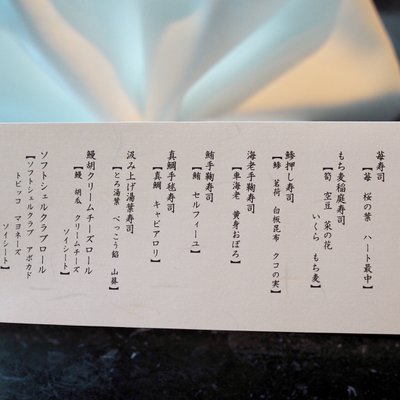 苺寿司
【苺　桜の葉　ハート最中】
もち麦稲庭寿司
【筍　空豆　菜の花
いくら　もち麦】
鯵押し寿司
【鯵　茗荷　白板昆布　クコの実】
海老手鞠寿司
【車海老　黄身おぼろ】
鮪手鞠寿司
【鮪　セルフィーユ】
真鯛手毬寿司
【真鯛　キャビアロリ】
汲み上げ湯葉寿司
【とろ湯葉　べっこう餡　山葵】
鰻胡クリームチーズロール
【鰻　胡瓜　クリームチーズ
ソイシート】
ソフトシェルクラブロール
【ソフトシェルクラブ　アボカド
トビッコ　マヨネーズ
ソイシート】